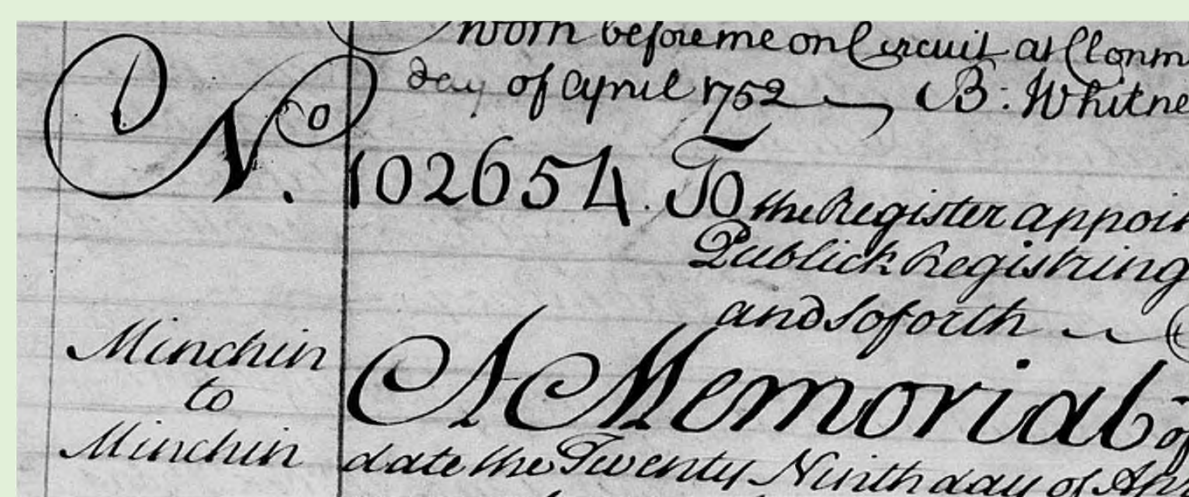 worn before me on Circuit at Clonm
day of april 1752 B: Whitne
No. 102654. To the Register appoin
Publick Registring
and soforth
Minchin
to
Minchin
A Memorial of
date the Twenty Ninth day of Ap